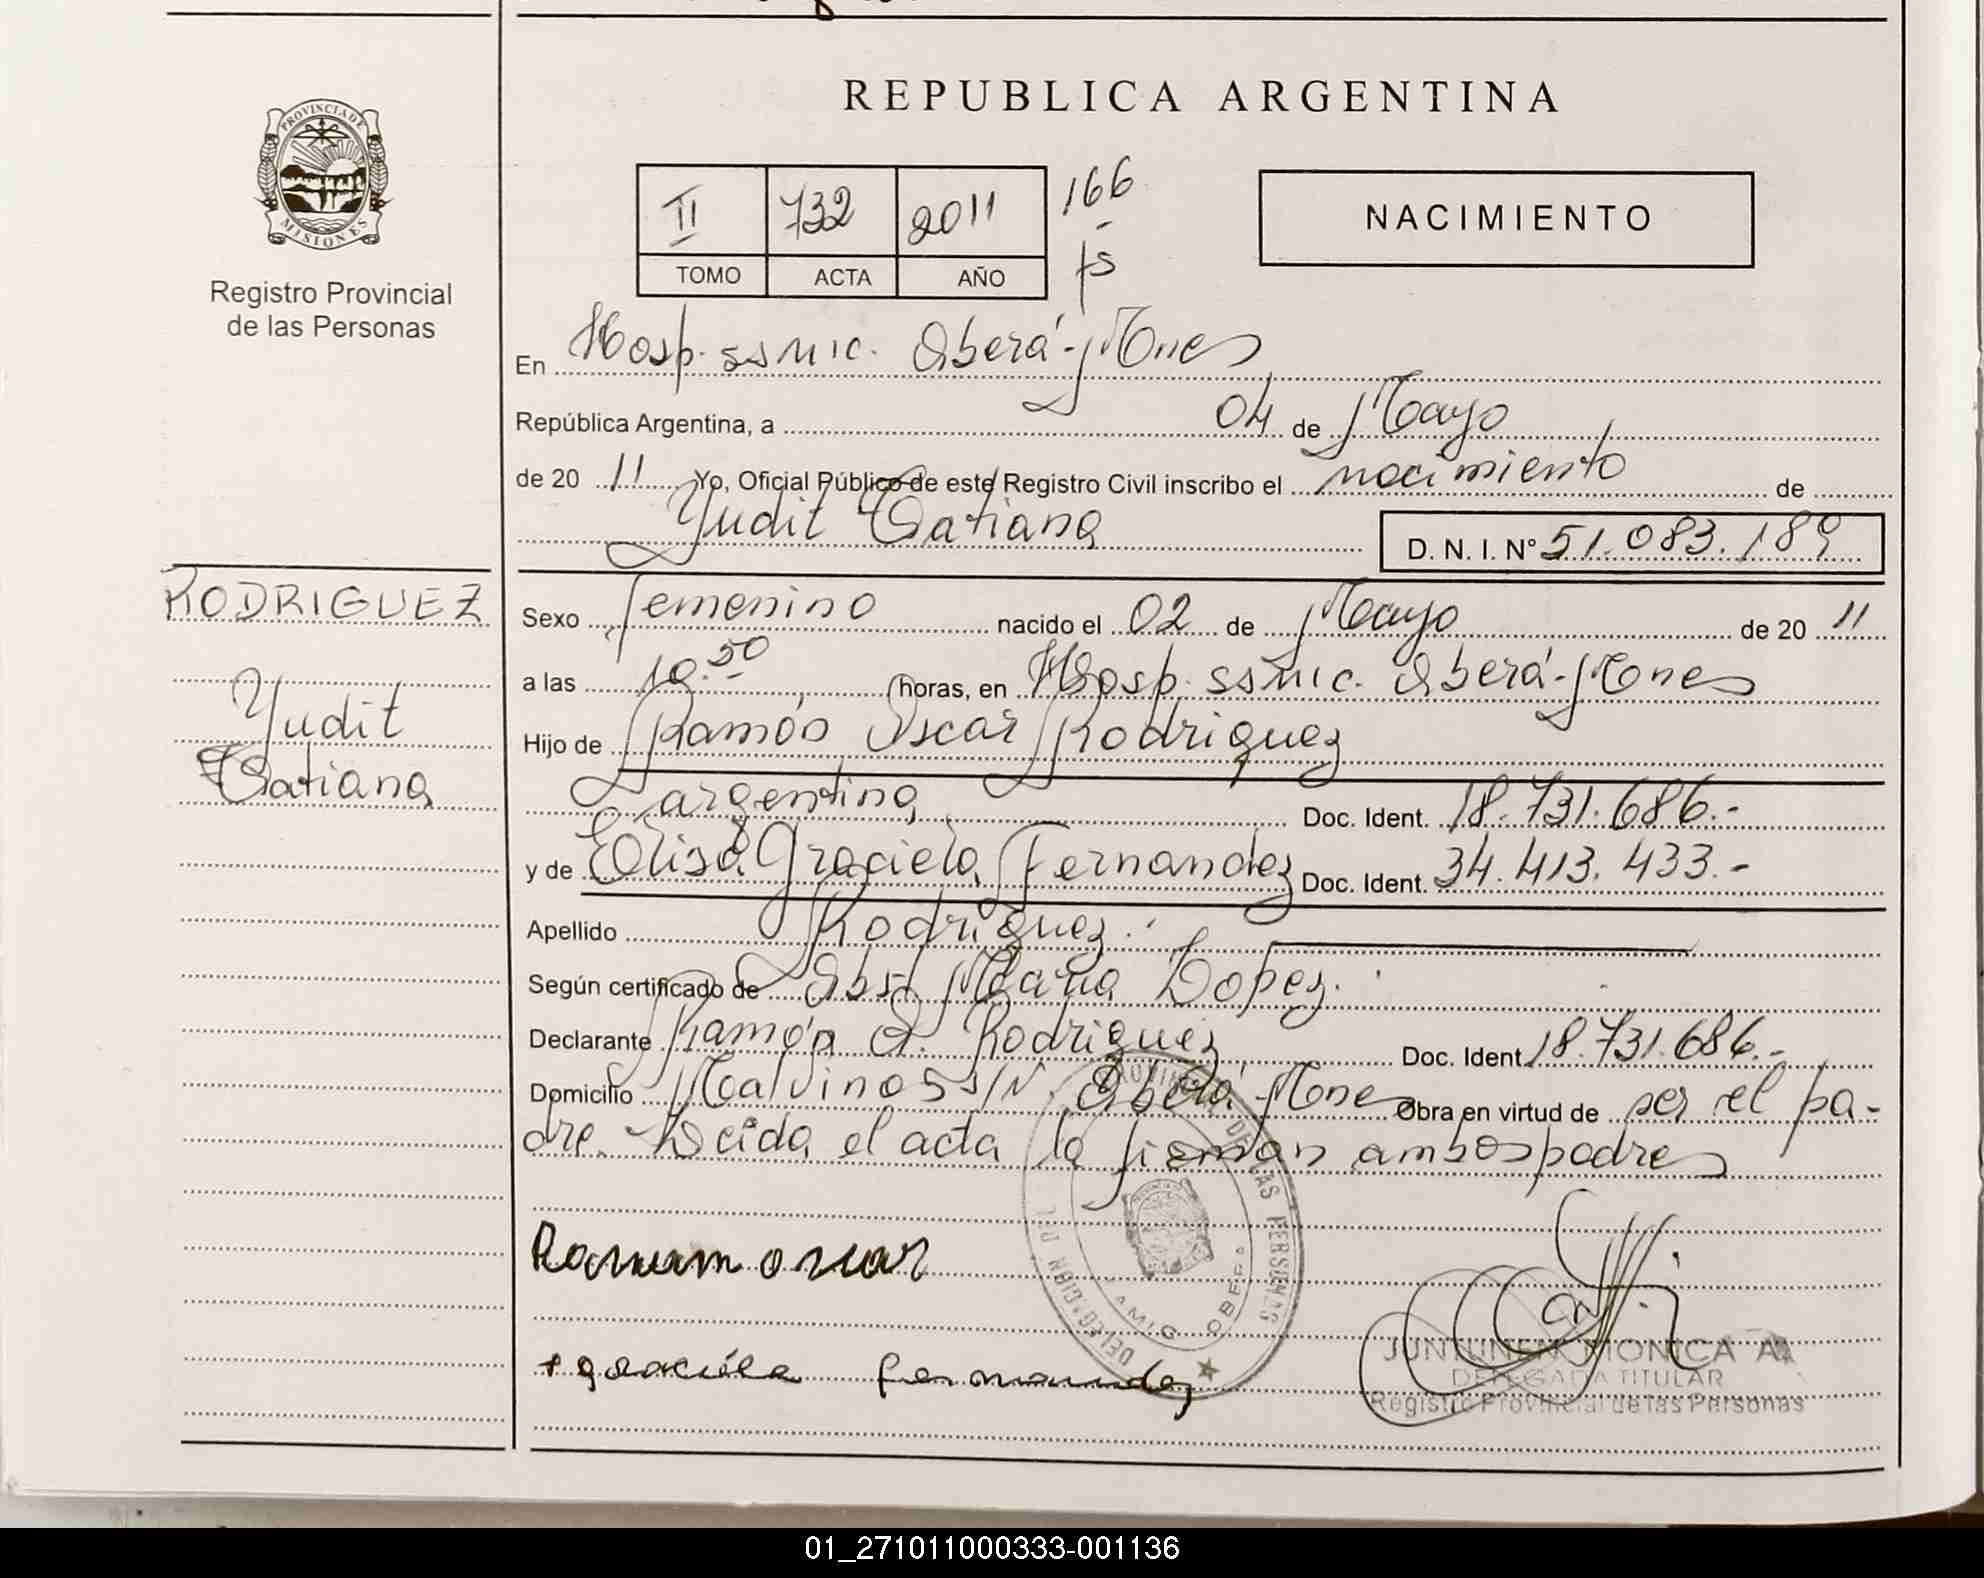 REPUBLICA ARGENTINA
PROVINCIA DE MISIONES
Registro Provincial
de las Personas
II 732 2011 166
TOMO ACTA AÑO fs
NACIMIENTO
En Hosp. SSMIC. Oberá-Mnes
República Argentina, a 04 de Mayo
de 20 11 Yo, Oficial Público de este Registro Civil inscribo el nacimiento de
Yudit Tatiana D. N. I. N° 51.083.189
RODRIGUEZ
Yudit
Tatiana
Sexo femenino nacido el 02 de Mayo de 20 11
a las 10.50 horas, en Hosp. SSMIC. Oberá-Mnes
Hijo de Ramón Oscar Rodriguez
argentino Doc. Ident. 18.731.686.-
y de Elisa Graciela Fernandez Doc. Ident. 34.413.433.-
Apellido Rodriguez.
Según certificado de Obst Maria Lopez.
Declarante Ramón O. Rodriguez Doc. Ident. 18.731.686.-
Domicilio Malvinas S/N. Oberá-Mnes Obra en virtud de ser el pa-
dre. Leida el acta la firman ambos padres
DELEGACION DEL DE LAS PERSONAS
OBERA
graciela fernandez
JUNTUNEN MONICA A.
DELEGADA TITULAR
Registro Provincial de las Personas
01_271011000333-001136